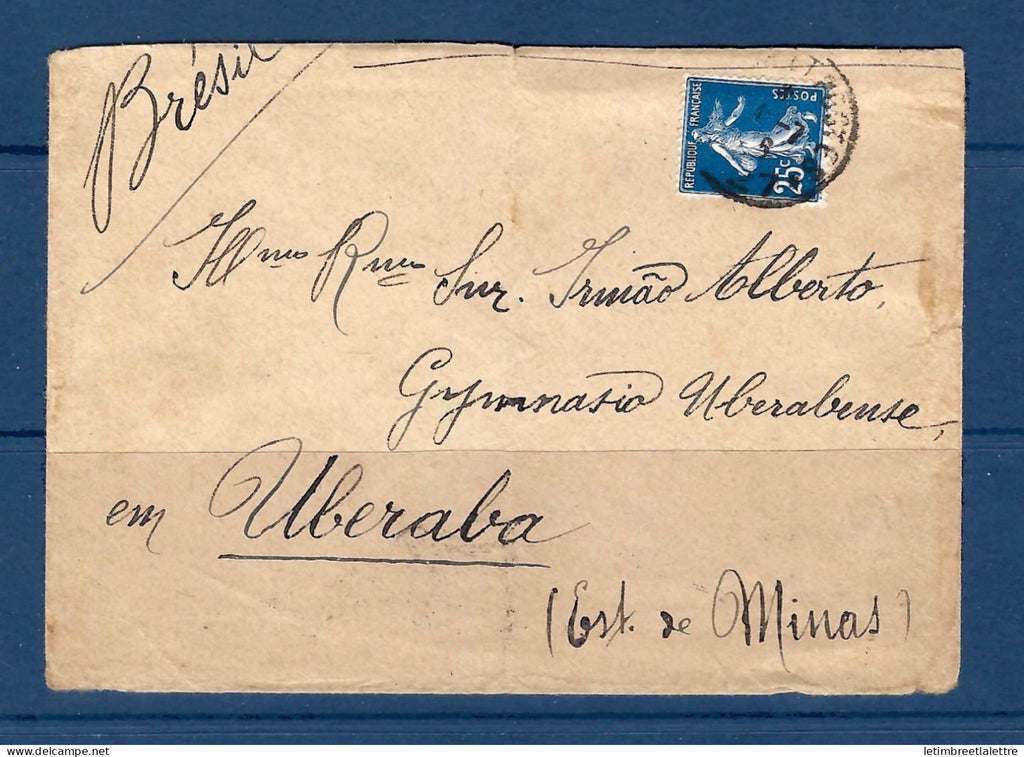 Brésil
RÉPUBLIQUE FRANÇAISE
POSTES
25c
Illmo Rmo Snr. Irmão Alberto,
Gymnasio Uberabense,
em Uberaba
(Est. de Minas)
letimbreetlalettre